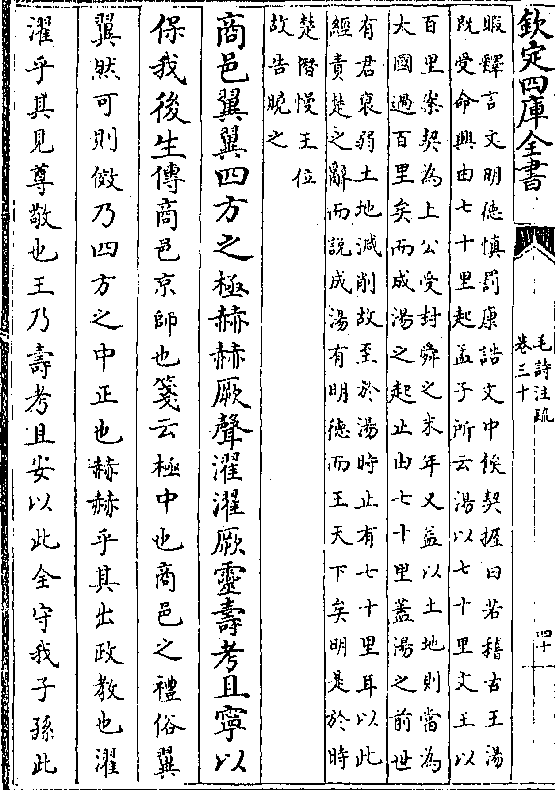 欽定四庫全書
毛詩注疏
卷三十
四十
暇釋言文明德慎罰康誥文中候契握曰若稽古王湯
既受命興由七十里起孟子所云湯以七十里文王以
百里案契為上公受封舜之末年又益以土地則當為
大國過百里矣而成湯之起止由七十里蓋湯之前世
有君衰弱土地減削故至於湯時止有七十里耳以此
經責楚之辭而說成湯有明德而王天下矣明是於時
楚僭慢王位
故告曉之
商邑翼翼四方之極赫赫厥聲濯濯厥靈壽考且寧以
保我後生傳商邑京師也箋云極中也商邑之禮俗翼
翼然可則傚乃四方之中正也赫赫乎其出政教也濯
濯乎其見尊敬也王乃壽考且安以此全守我子孫此